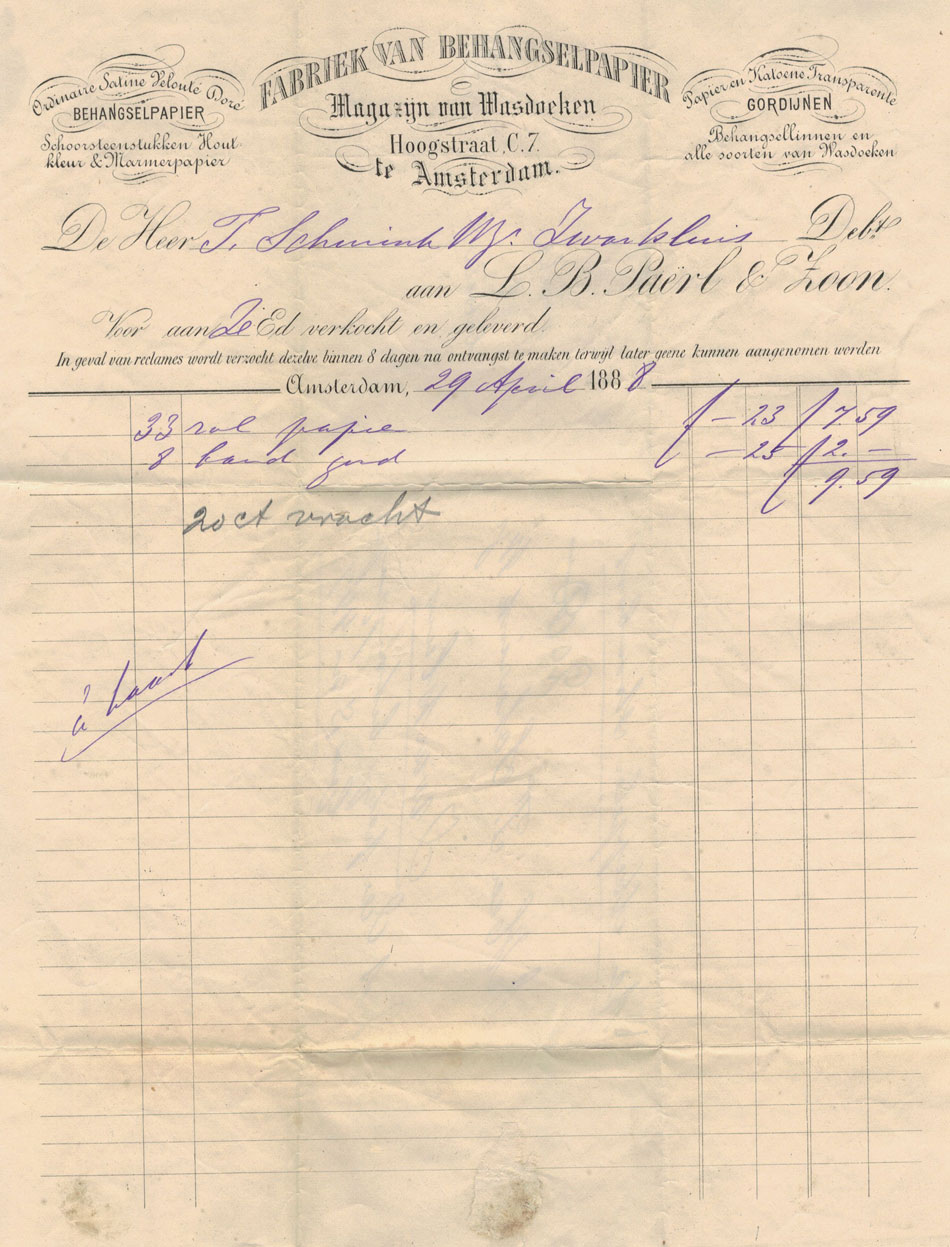 FABRIEK VAN BEHANGSELPAPIER
Magazijn van Wasdoeken
Hoogstraat, C. 7.
te Amsterdam.
Ordinaire Satiné Velouté Doré
BEHANGSELPAPIER
Schoorsteenstukken Hout-
kleur & Marmerpapier
Papier en Katoene Transparente
GORDIJNEN
Behangsellinnen en
alle soorten van Wasdoeken
De Heer T. Schurink Zwartsluis Debt
aan L. B. Paërl & Zoon.
Voor aan Ed verkocht en geleverd.
In geval van reclames wordt verzocht dezelve binnen 8 dagen na ontvangst te maken terwijl later geene kunnen aangenomen worden
Amsterdam, 29 April 1888
33 rol papier f - 23 f 7.59
8 band gord - 25 f 2. -
f 9.59
20 ct vracht